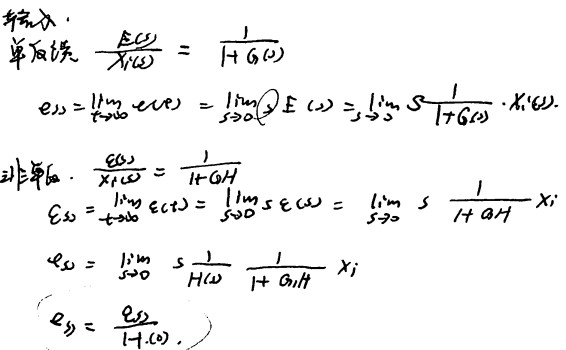 输入.
单反馈 E(s)/Xi(s) = 1/(1+G(s))
ess = lim t→∞ e(t) = lim s→0 s E(s) = lim s→0 s 1/(1+G(s)) · Xi(s).
非单反. ε(s)/Xi(s) = 1/(1+GH)
εss = lim t→∞ ε(t) = lim s→0 s ε(s) = lim s→0 s 1/(1+GH) Xi
ess = lim s→0 s 1/H(s) 1/(1+GH) Xi
ess = εss/H(0).